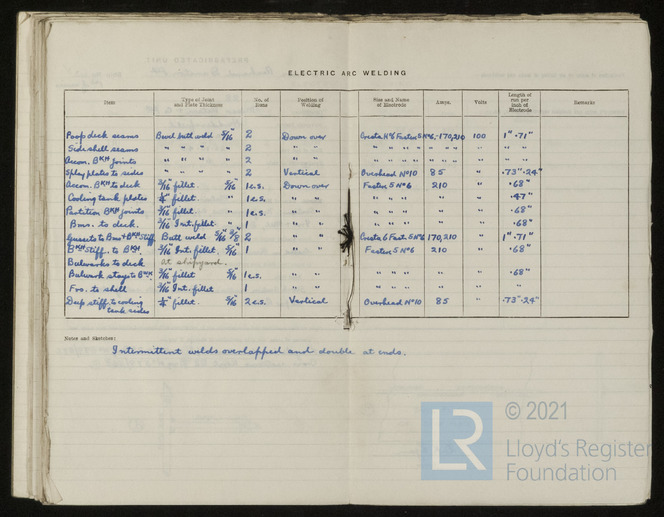 ELECTRIC ARC WELDING
Item Type of Joint and Plate Thickness No. of Runs Position of Welding Size and Name of Electrode Amps. Volts Length of run per inch of Electrode Remarks
Poop deck seams Bevel butt weld 5/16" 2 Down over 170,210 100 1" .71"
Side shell seams " " " 2 " " " " " " " " " "
Accon. BKH joints " " " 2 " " " " " " " " "
Splay plates to sides " " " 2 Vertical Overhead No10 85 " .73" .24"
Accon. BKH to deck 3/16" fillet. 5/16 1 c.s. Down over Fastex 5 No6 210 " .68"
Cooling tank plates 1/4" fillet. " 1 c.s. " " " " " " " .47"
Partition BKH joints 3/16" fillet. " 1 c.s. " " " " " " " .68"
Bms. to deck. 3/16" Int. fillet " " " " " " " .68"
Gussets to Bms + BKH Stiff. Butt weld 5/16" 3/8 2 " " 170,210 " 1" .71"
BKH Stiff. to BKH. 3/16" Int. fillet. 5/16 1 " " Fastex 5 No6 210 " .68"
Bulwarks to deck at shipyard.
Bulwark stays to BKH. 3/16" fillet 5/16" 1 c.s. " " " " " " " .68"
Frs. to shell 3/16" Int. fillet 1 " " " " " " "
Dup stiff to cooling 1/4" fillet. 5/16" 2 c.s. Vertical Overhead No10 85 " .73" .24"
tank sides
Notes and Sketches:
Intermittent welds overlapped and double at ends.
LR © 2021
Lloyd's Register
Foundation